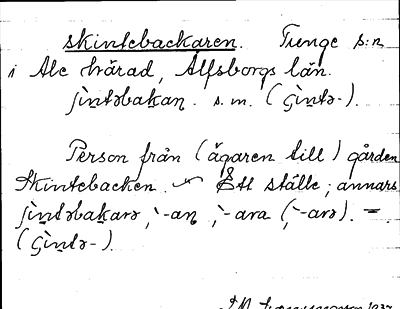 skintebackaren. Tunge s:n
i Ale härad, Älfsborgs län.
ʃìntəbakaṇ. s.m. (çìntə-).
Person från (ägaren till) gården
Skintebacken. Ett ställe; annars
ʃìntəbakarə, -aṇ, -ara (, -arə). =
(çìntə-).